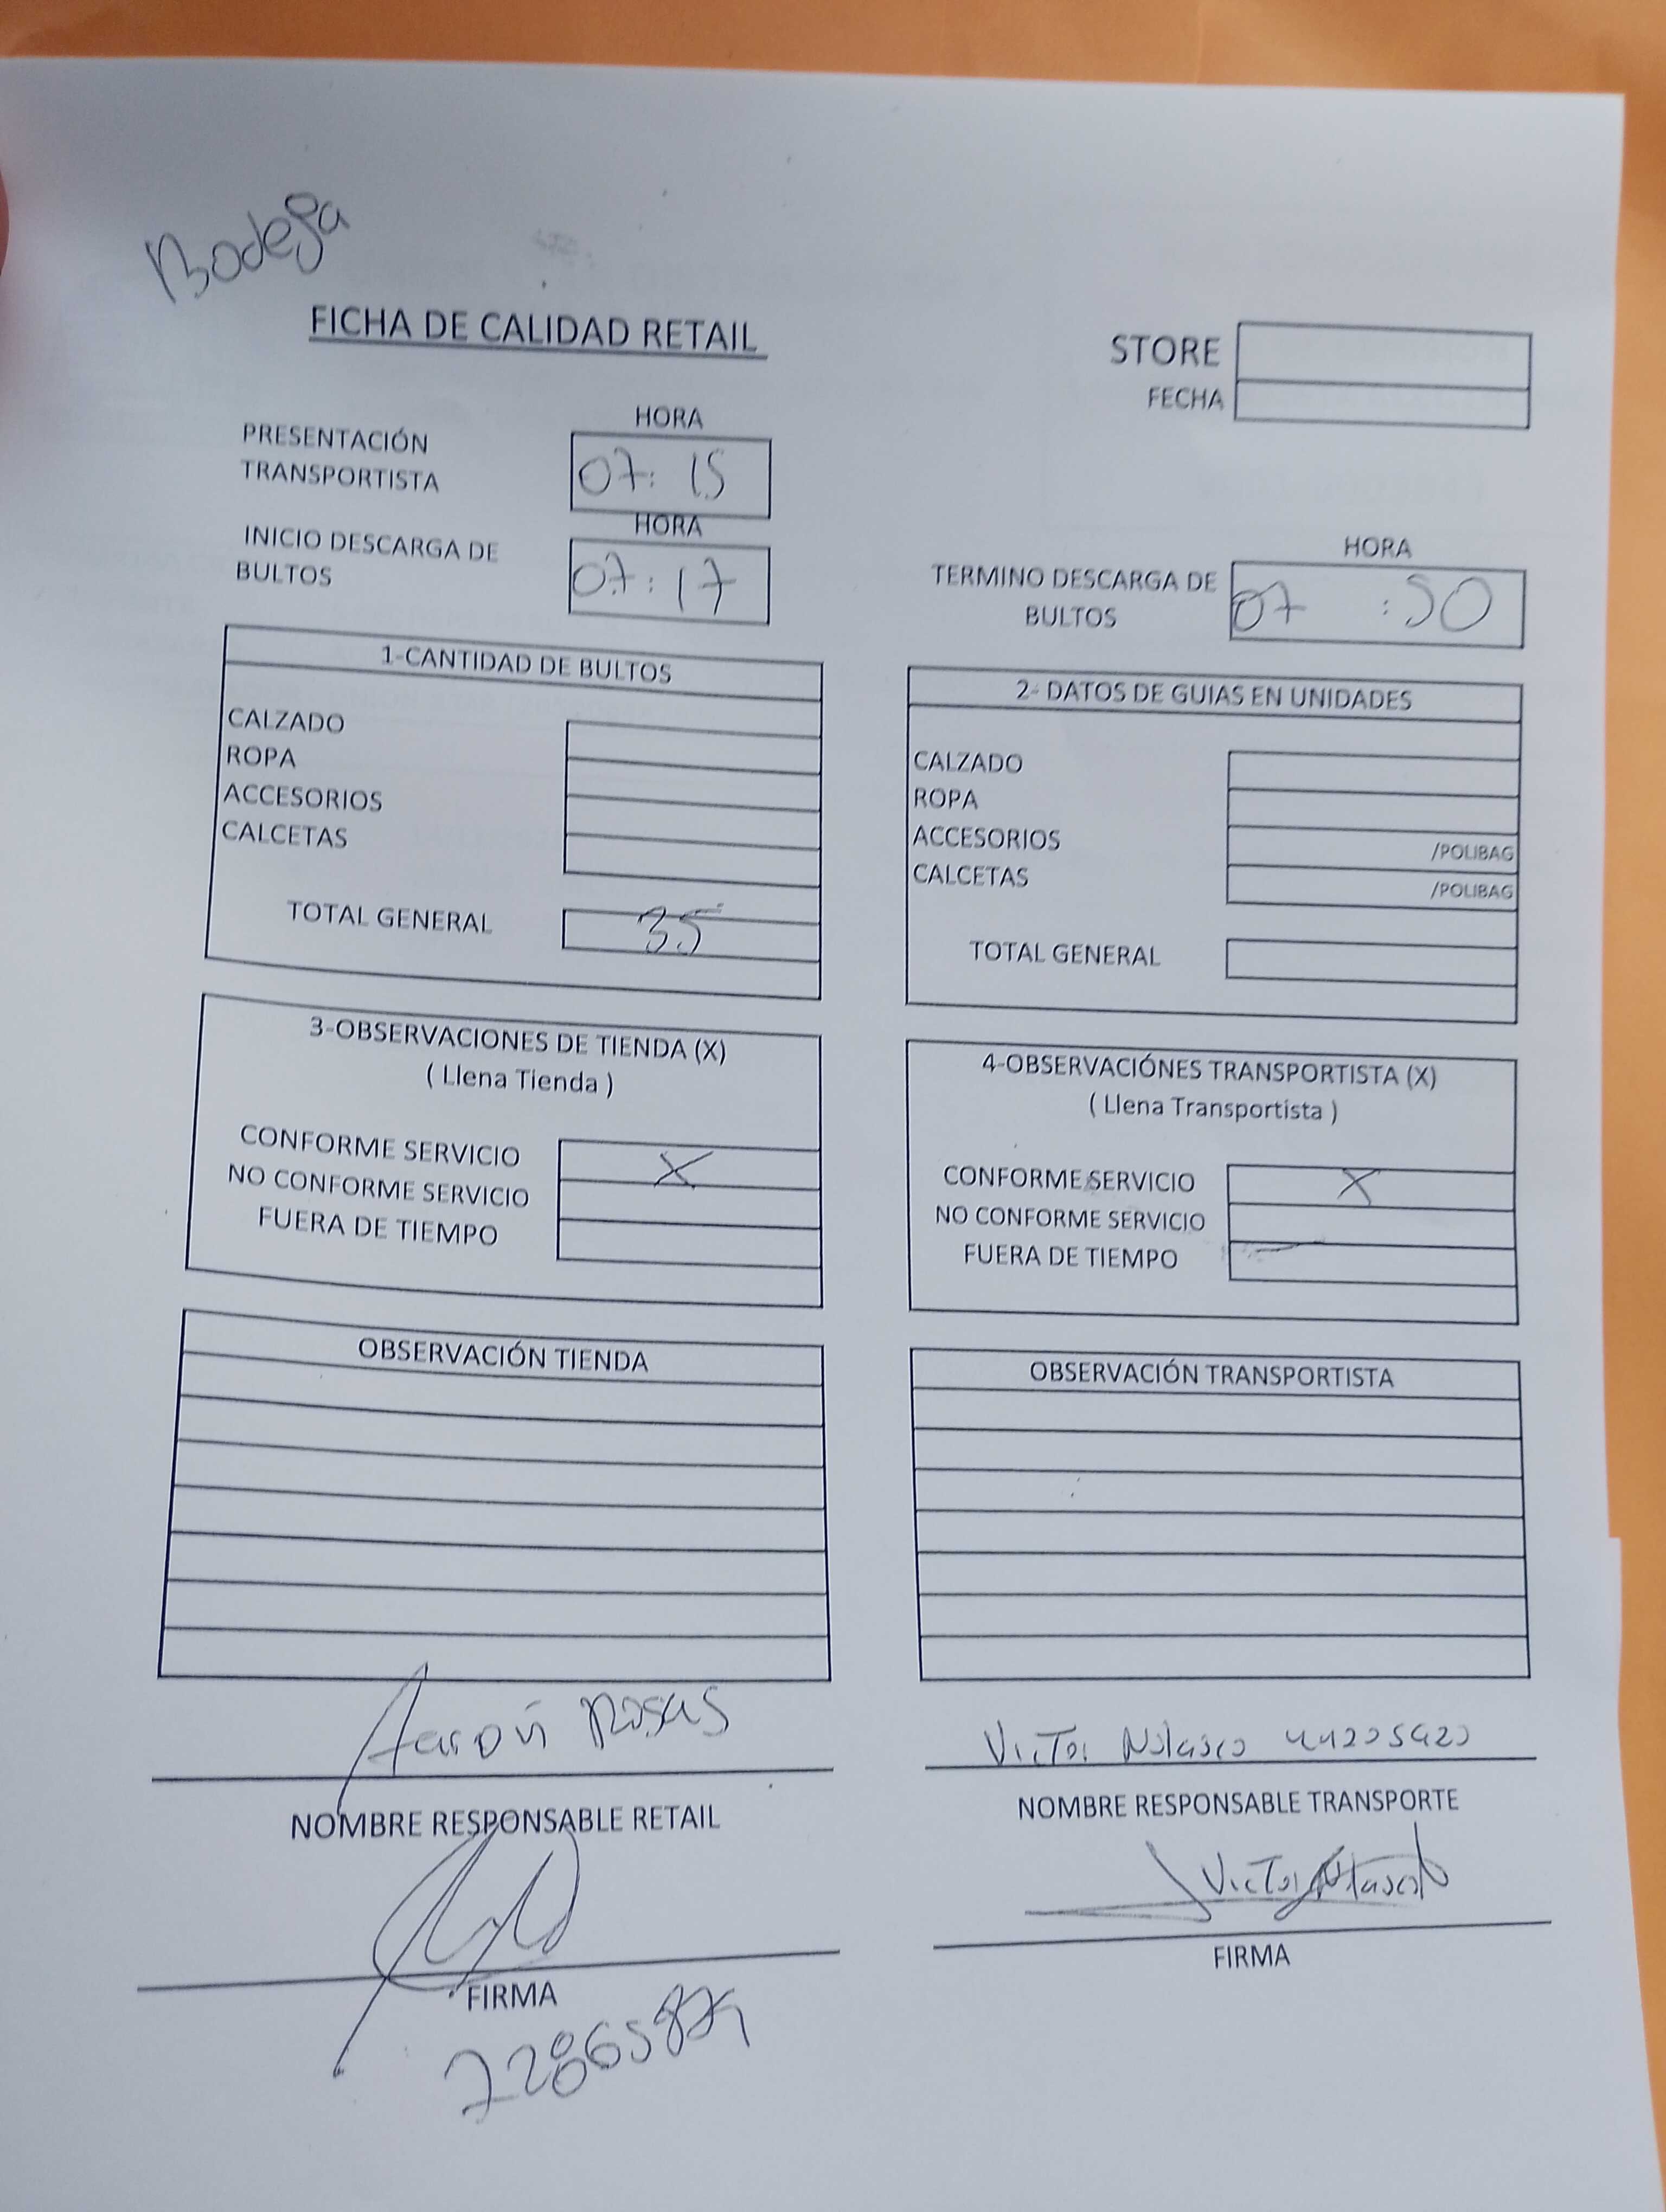 Bodega
FICHA DE CALIDAD RETAIL
STORE
FECHA
HORA
PRESENTACIÓN
TRANSPORTISTA
07:15
HORA
INICIO DESCARGA DE
BULTOS
07:17
HORA
TERMINO DESCARGA DE
BULTOS
07
1-CANTIDAD DE BULTOS
CALZADO
ROPA
ACCESORIOS
CALCETAS
TOTAL GENERAL 35
2- DATOS DE GUIAS EN UNIDADES
CALZADO
ROPA
ACCESORIOS /POLIBAG
CALCETAS /POLIBAG
TOTAL GENERAL
3-OBSERVACIONES DE TIENDA (X)
( Llena Tienda )
CONFORME SERVICIO X
NO CONFORME SERVICIO
FUERA DE TIEMPO
4-OBSERVACIÓNES TRANSPORTISTA (X)
( Llena Transportista )
CONFORME SERVICIO X
NO CONFORME SERVICIO
FUERA DE TIEMPO
OBSERVACIÓN TIENDA
OBSERVACIÓN TRANSPORTISTA
Aarón Rosas
NOMBRE RESPONSABLE RETAIL
FIRMA
Victor Nolasco
NOMBRE RESPONSABLE TRANSPORTE
Victor Nolasco
FIRMA